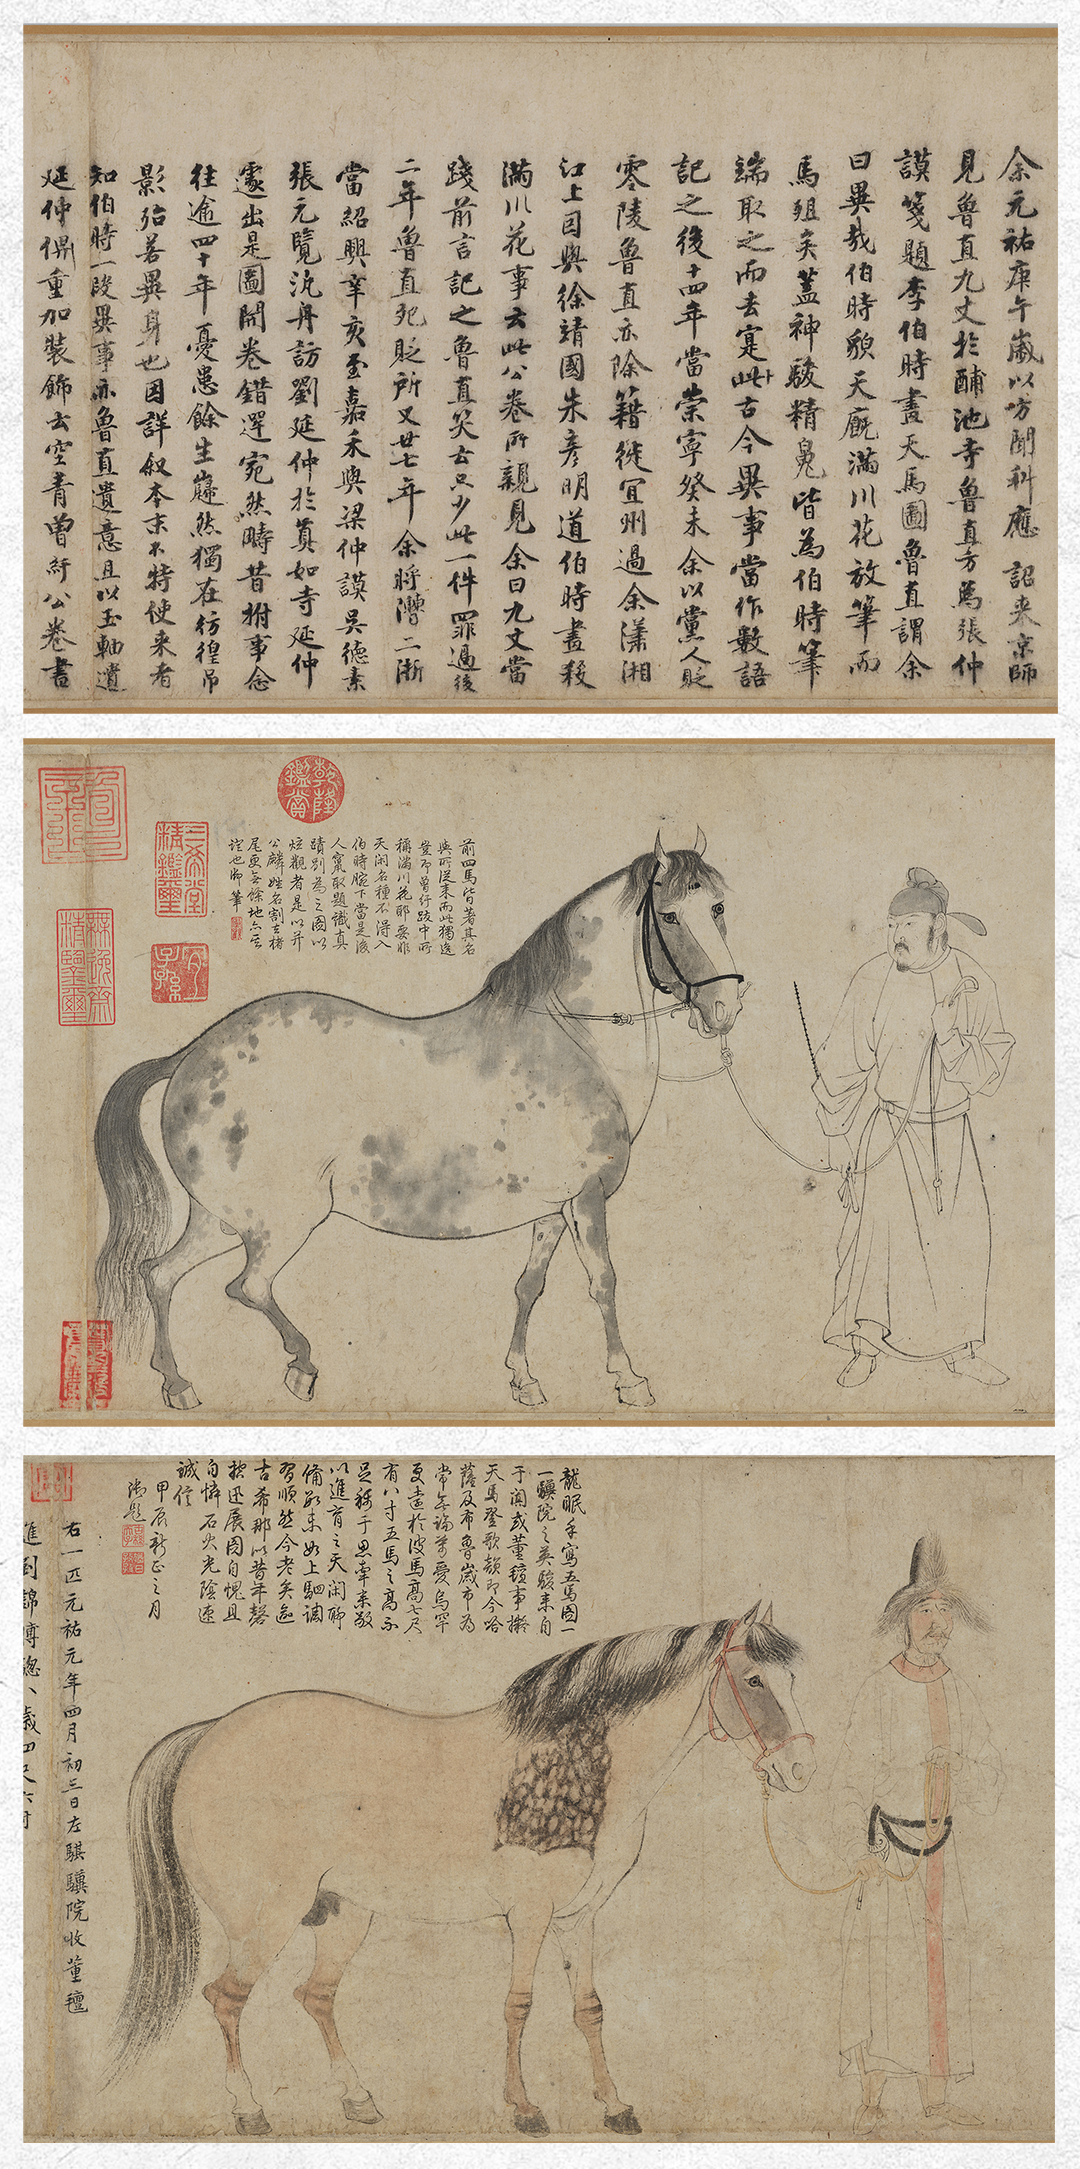 余元祐庚午歲以方聞科應詔来京師
見魯直九丈於酺池寺魯直方為張仲
謨箋題李伯時畫天馬圖魯直謂余
曰異哉伯時貌天廐滿川花放筆而
馬殂矣蓋神駿精魄皆為伯時筆
端取之而去寔此古今異事當作數語
記之後十四年當崇寧癸未余以黨人貶
零陵魯直亦除籍徙宜州過余瀟湘
江上因與徐靖國朱彦明道伯時畫殺
滿川花事云此公卷所親見余曰九丈當
踐前言記之魯直笑云只少此一件罪過後
二年魯直死貶所又廿七年余将漕二浙
當紹興辛亥至嘉禾與梁仲謨吳德素
張元覽汎舟訪劉延仲於真如寺延仲
遽出是圖開卷錯愕宛然疇昔拊事念
往逾四十年憂患餘生巋然獨在彷徨弔
影殆若異身也因詳叙本末不特使来者
知伯時一段異事亦魯直遺意且以玉軸遺
延仲俾重加裝飾云空青曾紆公卷書
乾隆鑑賞
三希堂精鑑璽
宜子孫
前四馬皆著其名
與所從来而此獨逸
豈即曾紆跋中所
稱滿川花耶要非
天閑名種不得入
伯時腕下當是後
人竄取題識真
蹟別為之圖以
炫觀者是以并
公麟姓名割去楮
尾更無餘地亦一
證也御筆
龍眠手寫五馬圖一
一驥院之英駿来自
于闐或董氊事擬
天馬登歌頟即今哈
薩及布魯歲市為
常無論萬愛烏罕
更遠於彼馬高七尺
有八寸五馬之高不
足稱于思牽来敬
以進育之天閑聊
備數未如上駟調
習順然今老矣逾
古希那以昔年磬
控迅展圖自愧且
自憐石火光陰速
誠信
甲辰新正之月
御題
右一匹元祐元年四月初三日左騏驥院收董氊
進到錦膊驄八歲四尺六寸